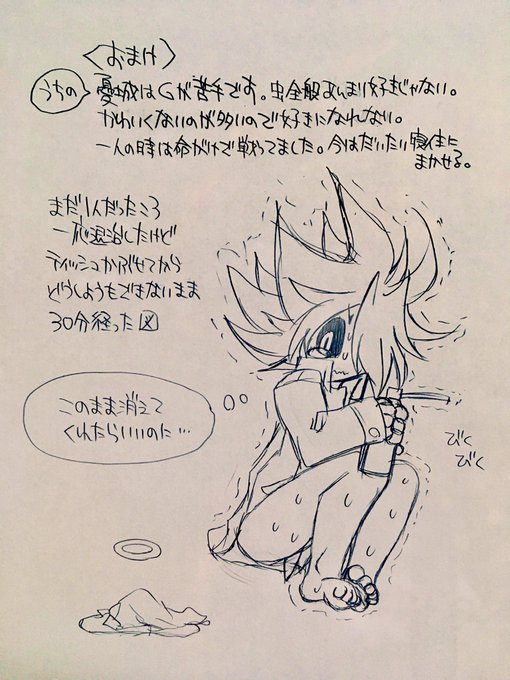 〈おまけ〉
うちの 憂城はGが苦手です。虫全般あんまり好きじゃない。
かわいくないのが多いので好きになれない。
一人の時は命がけで戦ってました。今はだいたい寝住に
まかせる。
まだ1人だったころ
一応退治したけど
ティッシュかぶせてから
どうしようもできないまま
30分経った図
このまま消えて
くれたらいいのに…
びく
びく